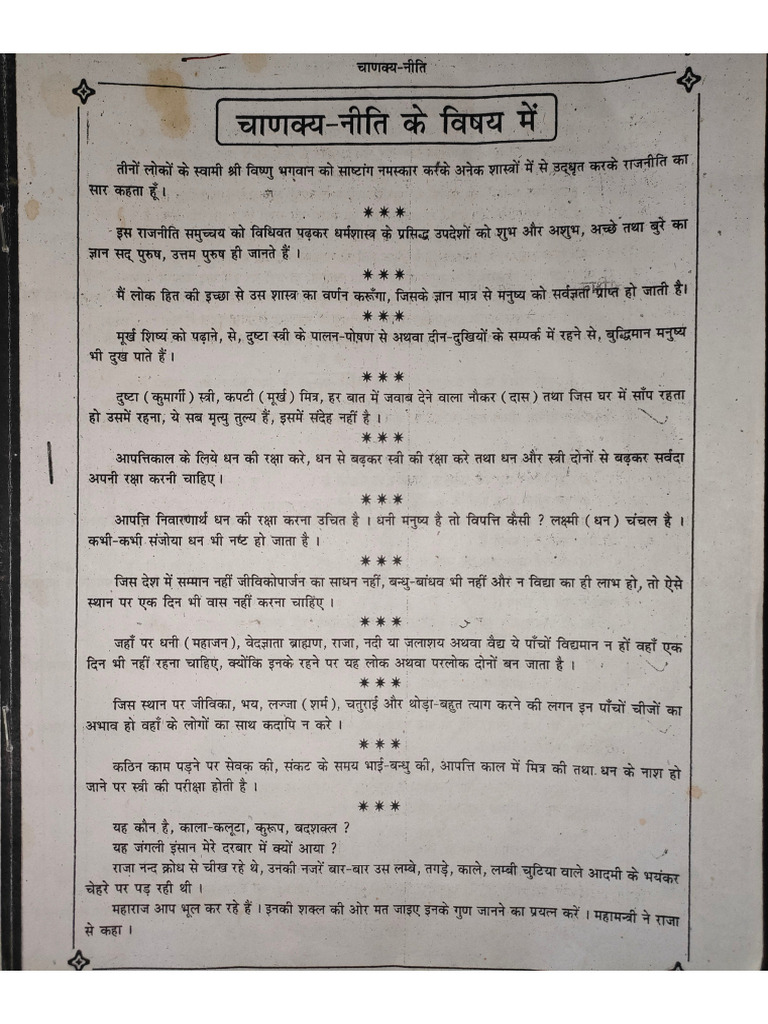 चाणक्य-नीति
चाणक्य-नीति के विषय में
तीनों लोकों के स्वामी श्री विष्णु भगवान को साष्टांग नमस्कार करके अनेक शास्त्रों में से उद्धृत करके राजनीति का
सार कहता हूँ ।
✷ ✷ ✷
इस राजनीति समुच्चय को विधिवत पढ़कर धर्मशास्त्र के प्रसिद्ध उपदेशों को शुभ और अशुभ, अच्छे तथा बुरे का
ज्ञान सद् पुरुष, उत्तम पुरुष ही जानते हैं ।
✷ ✷ ✷
मैं लोक हित की इच्छा से उस शास्त्र का वर्णन करूँगा, जिसके ज्ञान मात्र से मनुष्य को सर्वज्ञता प्राप्त हो जाती है।
✷ ✷ ✷
मूर्ख शिष्य को पढ़ाने, से, दुष्टा स्त्री के पालन-पोषण से अथवा दीन-दुखियों के सम्पर्क में रहने से, बुद्धिमान मनुष्य
भी दुख पाते हैं ।
✷ ✷ ✷
दुष्टा (कुमार्गी) स्त्री, कपटी (मूर्ख) मित्र, हर बात में जवाब देने वाला नौकर (दास) तथा जिस घर में साँप रहता
हो उसमें रहना, ये सब मृत्यु तुल्य हैं, इसमें संदेह नहीं है ।
✷ ✷ ✷
आपत्तिकाल के लिये धन की रक्षा करे, धन से बढ़कर स्त्री की रक्षा करे तथा धन और स्त्री दोनों से बढ़कर सर्वदा
अपनी रक्षा करनी चाहिए ।
✷ ✷ ✷
आपत्ति निवारणार्थ धन की रक्षा करना उचित है । धनी मनुष्य है तो विपत्ति कैसी ? लक्ष्मी (धन) चंचल है ।
कभी-कभी संजोया धन भी नष्ट हो जाता है ।
✷ ✷ ✷
जिस देश में सम्मान नहीं जीविकोपार्जन का साधन नहीं, बन्धु-बांधव भी नहीं और न विद्या का ही लाभ हो, तो ऐसे
स्थान पर एक दिन भी वास नहीं करना चाहिए ।
✷ ✷ ✷
जहाँ पर धनी (महाजन), वेदज्ञाता ब्राह्मण, राजा, नदी या जलाशय अथवा वैद्य ये पाँचों विद्यमान न हों वहाँ एक
दिन भी नहीं रहना चाहिए, क्योंकि इनके रहने पर यह लोक अथवा परलोक दोनों बन जाता है ।
✷ ✷ ✷
जिस स्थान पर जीविका, भय, लज्जा (शर्म), चतुराई और थोड़ा-बहुत त्याग करने की लगन इन पाँचों चीजों का
अभाव हो वहाँ के लोगों का साथ कदापि न करे ।
✷ ✷ ✷
कठिन काम पड़ने पर सेवक की, संकट के समय भाई-बन्धु की, आपत्ति काल में मित्र की तथा धन के नाश हो
जाने पर स्त्री की परीक्षा होती है ।
✷ ✷ ✷
यह कौन है, काला-कलूटा, कुरूप, बदशक्ल ?
यह जंगली इंसान मेरे दरबार में क्यों आया ?
राजा नन्द क्रोध से चीख रहे थे, उनकी नजरें बार-बार उस लम्बे, तगड़े, काले, लम्बी चुटिया वाले आदमी के भयंकर
चेहरे पर पड़ रही थी ।
महाराज आप भूल कर रहे हैं । इनकी शक्ल की ओर मत जाइए इनके गुण जानने का प्रयत्न करें । महामन्त्री ने राजा
से कहा ।